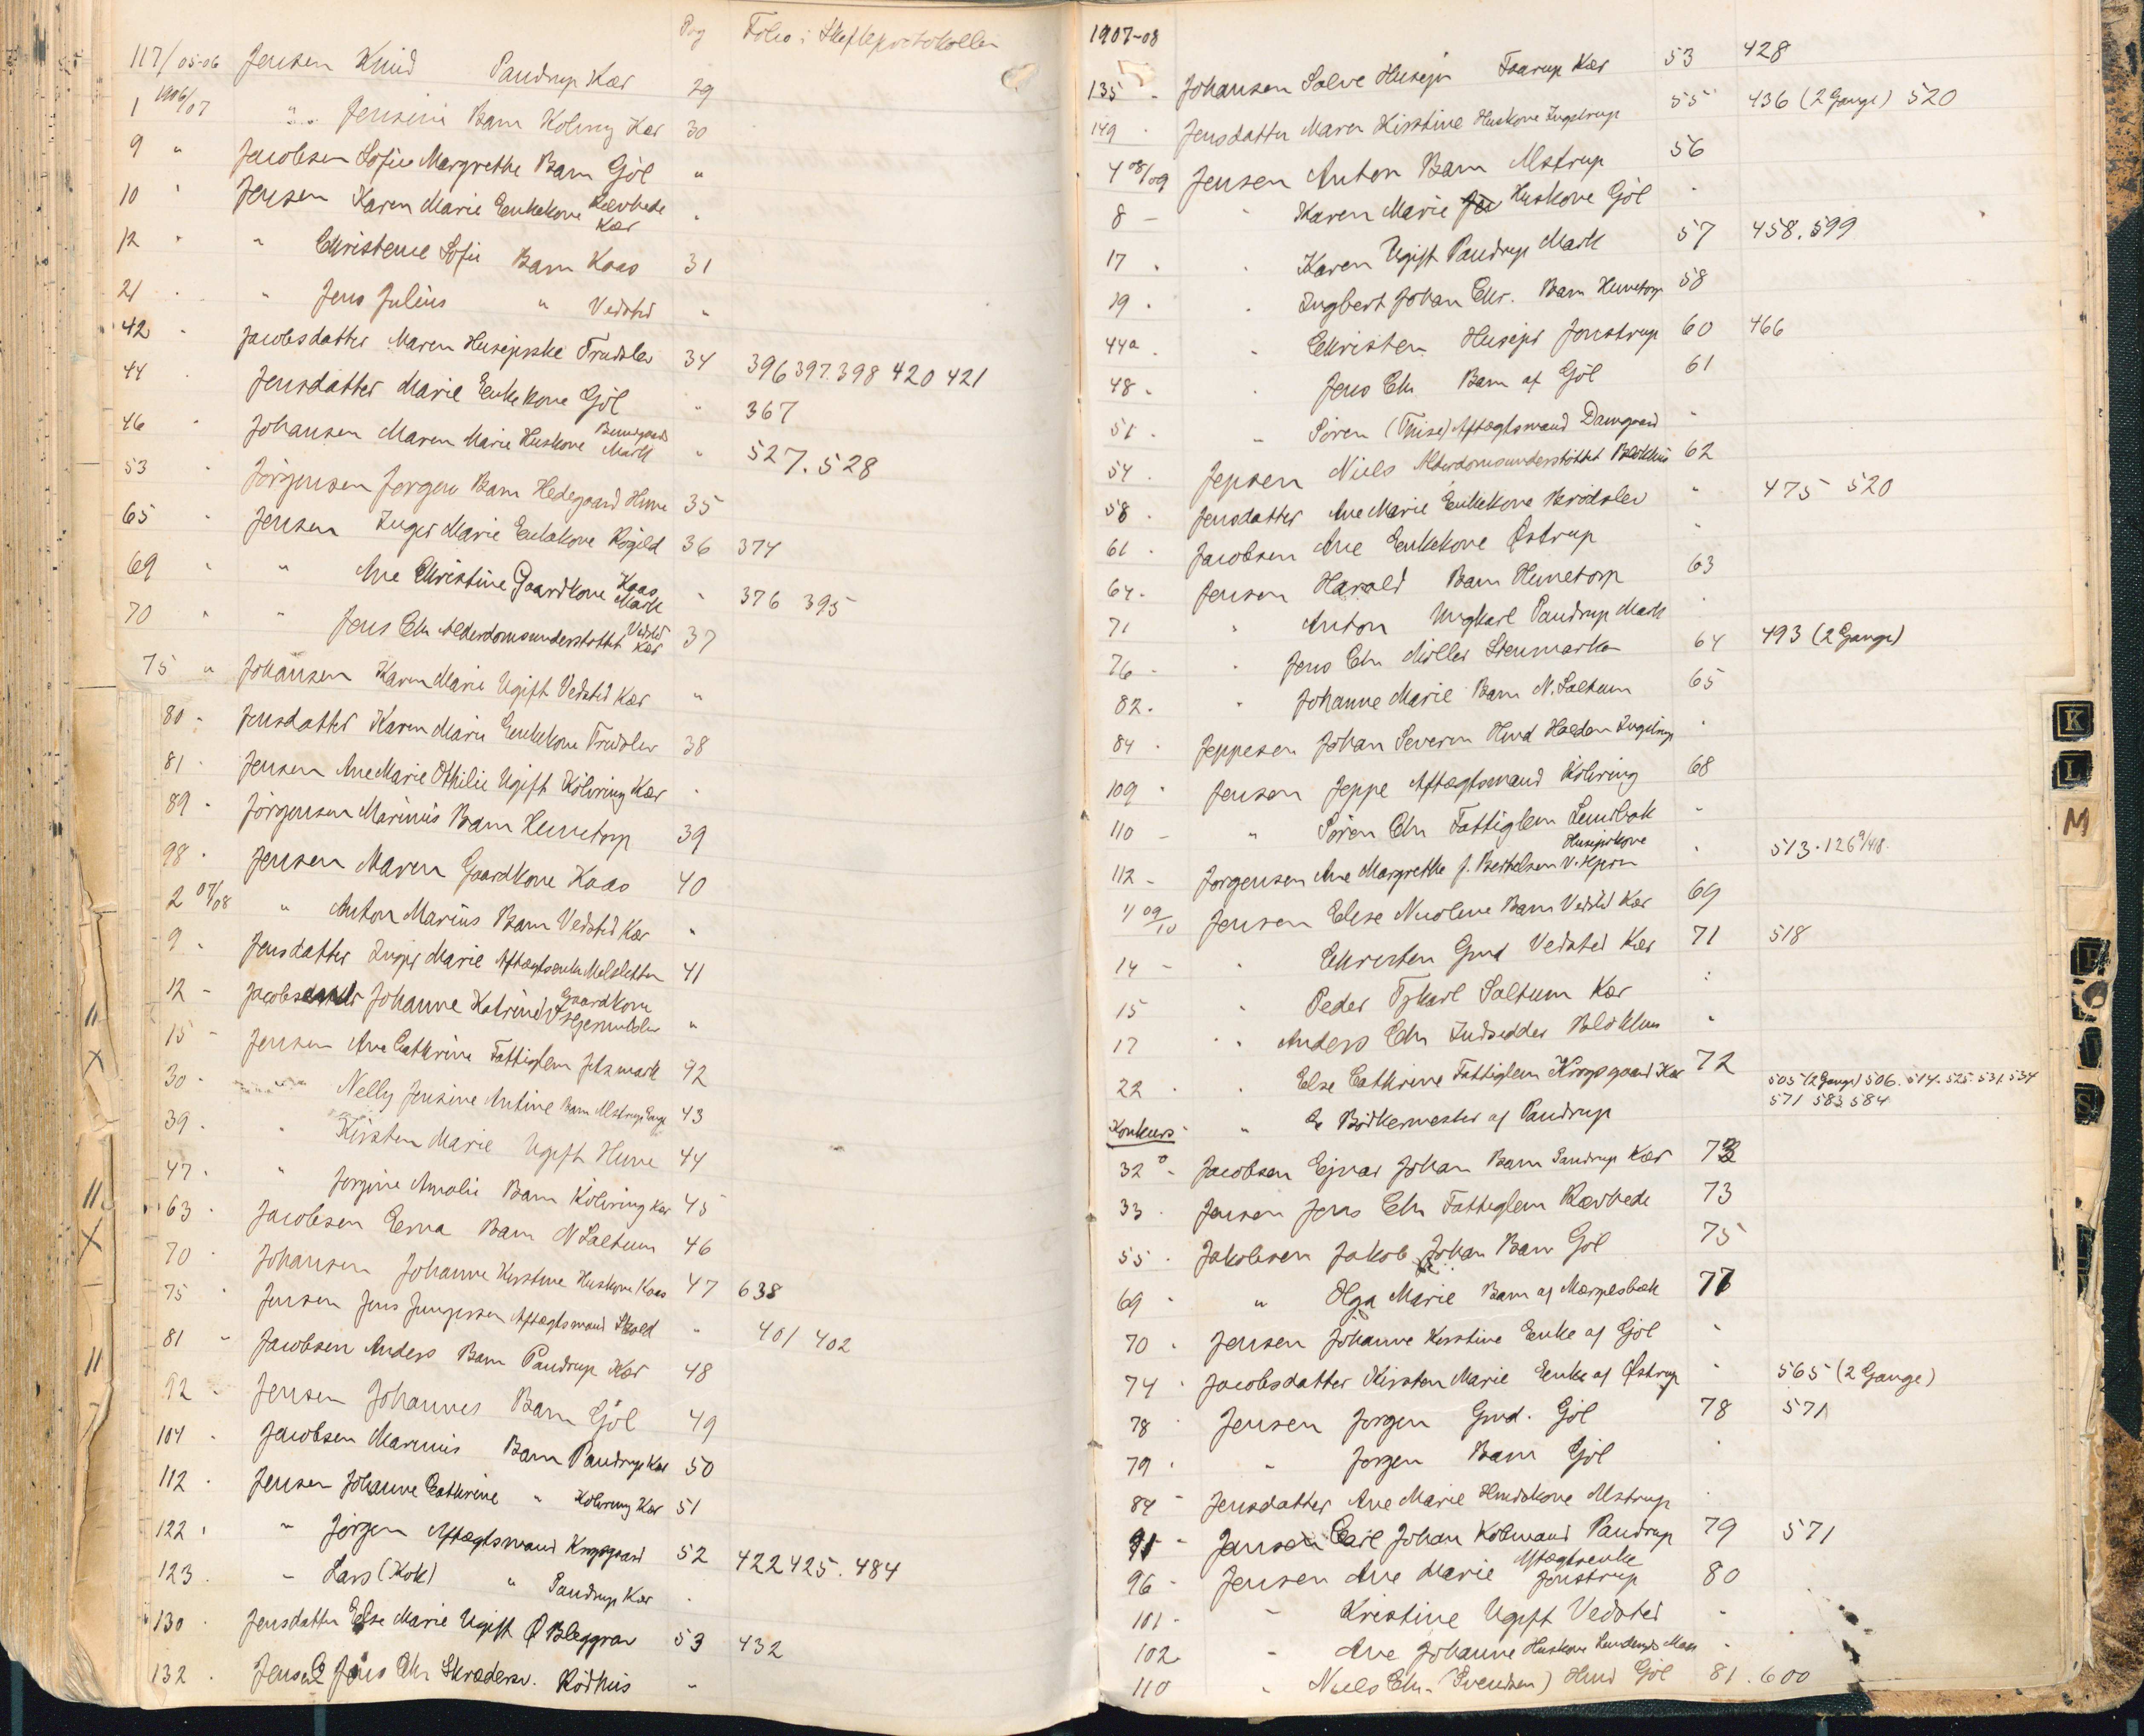 Pag Folio i Skifteprotokollen
117/05-06 Jensen Knud Pandrup Kær 29
1 1906/07 " Jensine Barn Kolvrng Kær 30
9 " Jacobsen Sofie Margrethe Barn Gjöl "
10 " Jensen Karen Marie Enkekone Rævhede Kær "
12 " " Christence Sofie Barn Kaas 31
21 " " Jens Julius " Vedsted "
42 " Jacobsdatter Maren Husejerske Trudslev 34 396 397. 398 420 421
44 Jensdatter Marie Enkekone Gjöl " 367
46 " Johansen Maren Marie Huskone Mark " 527. 528
53 " Jörgensen Jørgen Barn Hedegaard Hune 35
65 " Jensen Inger Marie Enkekone Rögild 36 374
69 " " Ane Christine Gaardkone Kaas Mark " 376 395
70 " " Jens Chr Alderdomsunderstøttet Vedsted Kær 37
75 " Johansen Karen Marie Ugift Vedsted Kær "
80 - Jensdatter Karen Marie Enkekone Trudslev 38
81 - Jensen Ane Marie Othilie Ugift Kölvring Kær "
89 - Jörgensen Marinus Barn Hunetorp 39
98 - Jensen Maren Gaardkone Kaas 40
2 07/08 " Anton Marius Barn Vedsted Kær "
9 - Jensdatter Inger Marie Aftægtsenke Melsletten 41
12 - Jacobsdatter Johanne Katrine Gaardkone V Hjermitslev "
15 - Jensen Ane Cathrine Fattiglem Jetsmark 42
30 - Nelly Jensine Antine Barn Alstrup Enge 43
39 - " Kirsten Marie Ugift Hune 44
47 - " Jørgine Amalie Barn Kölvring Kær 45
63 - Jacobsen Erna Barn N Saltum 46
70 - Johansen Johanne Kirstine Huskone Kaas 47 638
75 " Jensen Jens Jungersen Aftægtsmand " 401 402
81 - Jacobsen Anders Barn Pandrup Kær 48
92 - Jensen Johannes Barn Gjöl 49
104 - Jacobsen Marinus Barn Pandrup Kær 50
112 - Jensen Johanne Cathrine " Kölvring Kær 51
122 - " Jörgen Aftægtsmand Krogsgaard 52 422 425. 484
123 - " Lars (Kok) " Pandrup Kær "
130 - Jensdatter Else Marie Ugift Ø Bleggrav 53 432
132 - Jensen Jens Chr Skrædersv. Rödhus "
1907-08
135 - Johansen Salve Husejer Faarup Kær 53 428
149 - Jensdatter Maren Kirstine Huskone Ingstrup 55 436 (2 Gange) 520
4 08/09 Jensen Anton Barn Alstrup 56
8 - " Karen Marie Huskone Gjöl "
17 - " Karen Ugift Pandrup Mark 57 458. 599
19 - " Ingbert Johan Chr. Barn Hunetorp 58
44a - " Christen Husejer Jonstrup 60 466
48 - " Jens Chr Barn af Gjöl 61
51 - " Sören (Thise) Aftægtsmand Damgaard "
54 - Jepsen Niels Alderdomsunderstöttet Blokhus 62
58 - Jensdatter Ane Marie Enkekone Brödslev " 475 520
61 - Jacobsen Ane Enkekone Østrup "
64 - Jensen Harald Barn Hunetorp 63
71 " Anton Ungkarl Pandrup Mark "
76 - " Jens Chr Möller Stenmarken 64 493 (2 Gange)
82 - " Johanne Marie Barn N. Saltum 65
84 - Jeppesen Johan Severin Hmd Halden Ingstrup "
109 - Jensen Jeppe Aftægtsmand Kölvring 68
110 - " Sören Chr Fattiglem Lundbak "
112 - Jørgensen Ane Margrethe f. Bertelsen Husejerkone V. Hjerm " 513. 126 9/48
4 09/10 Jensen Else Nicoline Barn Vedsted Kær 69
14 - " Christen Gmd Vedsted Kær 71 518
15 " Peder Tjkarl Saltum Kær "
17 " Anders Chr Indsidder Blokhus "
22 - " Else Cathrine Fattiglem Krogsgaard Kær 72 505 (2 Gange) 506. 514. 525. 531. 534 571 583 584
Konkurs - " Bödkermester af Pandrup
32 - Jacobsen Ejnar Johan Barn Pandrup Kær 73
33 - Jensen Jens Chr Fattiglem Rævhede 73
55 - Jakobsen Jakob Johan Barn Gjöl 75
69 - " Olga Marie Barn af Mærgelsbæk 77
70 - Jensen Johanne Kirstine Enke af Gjöl "
74 - Jacobsdatter Kirsten Marie Enke af Østrup " 565 (2 Gange)
78 - Jensen Jørgen Gmd. Gjöl 78 571
79 - " Jørgen Barn Gjöl "
84 - Jensdatter Ane Marie Hmdskone Alstrup "
91 - Jansen Carl Johan Kölmand Pandrup 79 571
96 - Jensen Ane Marie Aftægtsenke Jonstrup 80
101 - " Kristine Ugift Vedsted "
102 - " Ane Johanne Huskone "
110 " Niels Chr. (Svendsen) Hmd Gjöl 81. 600
K
L
M
S